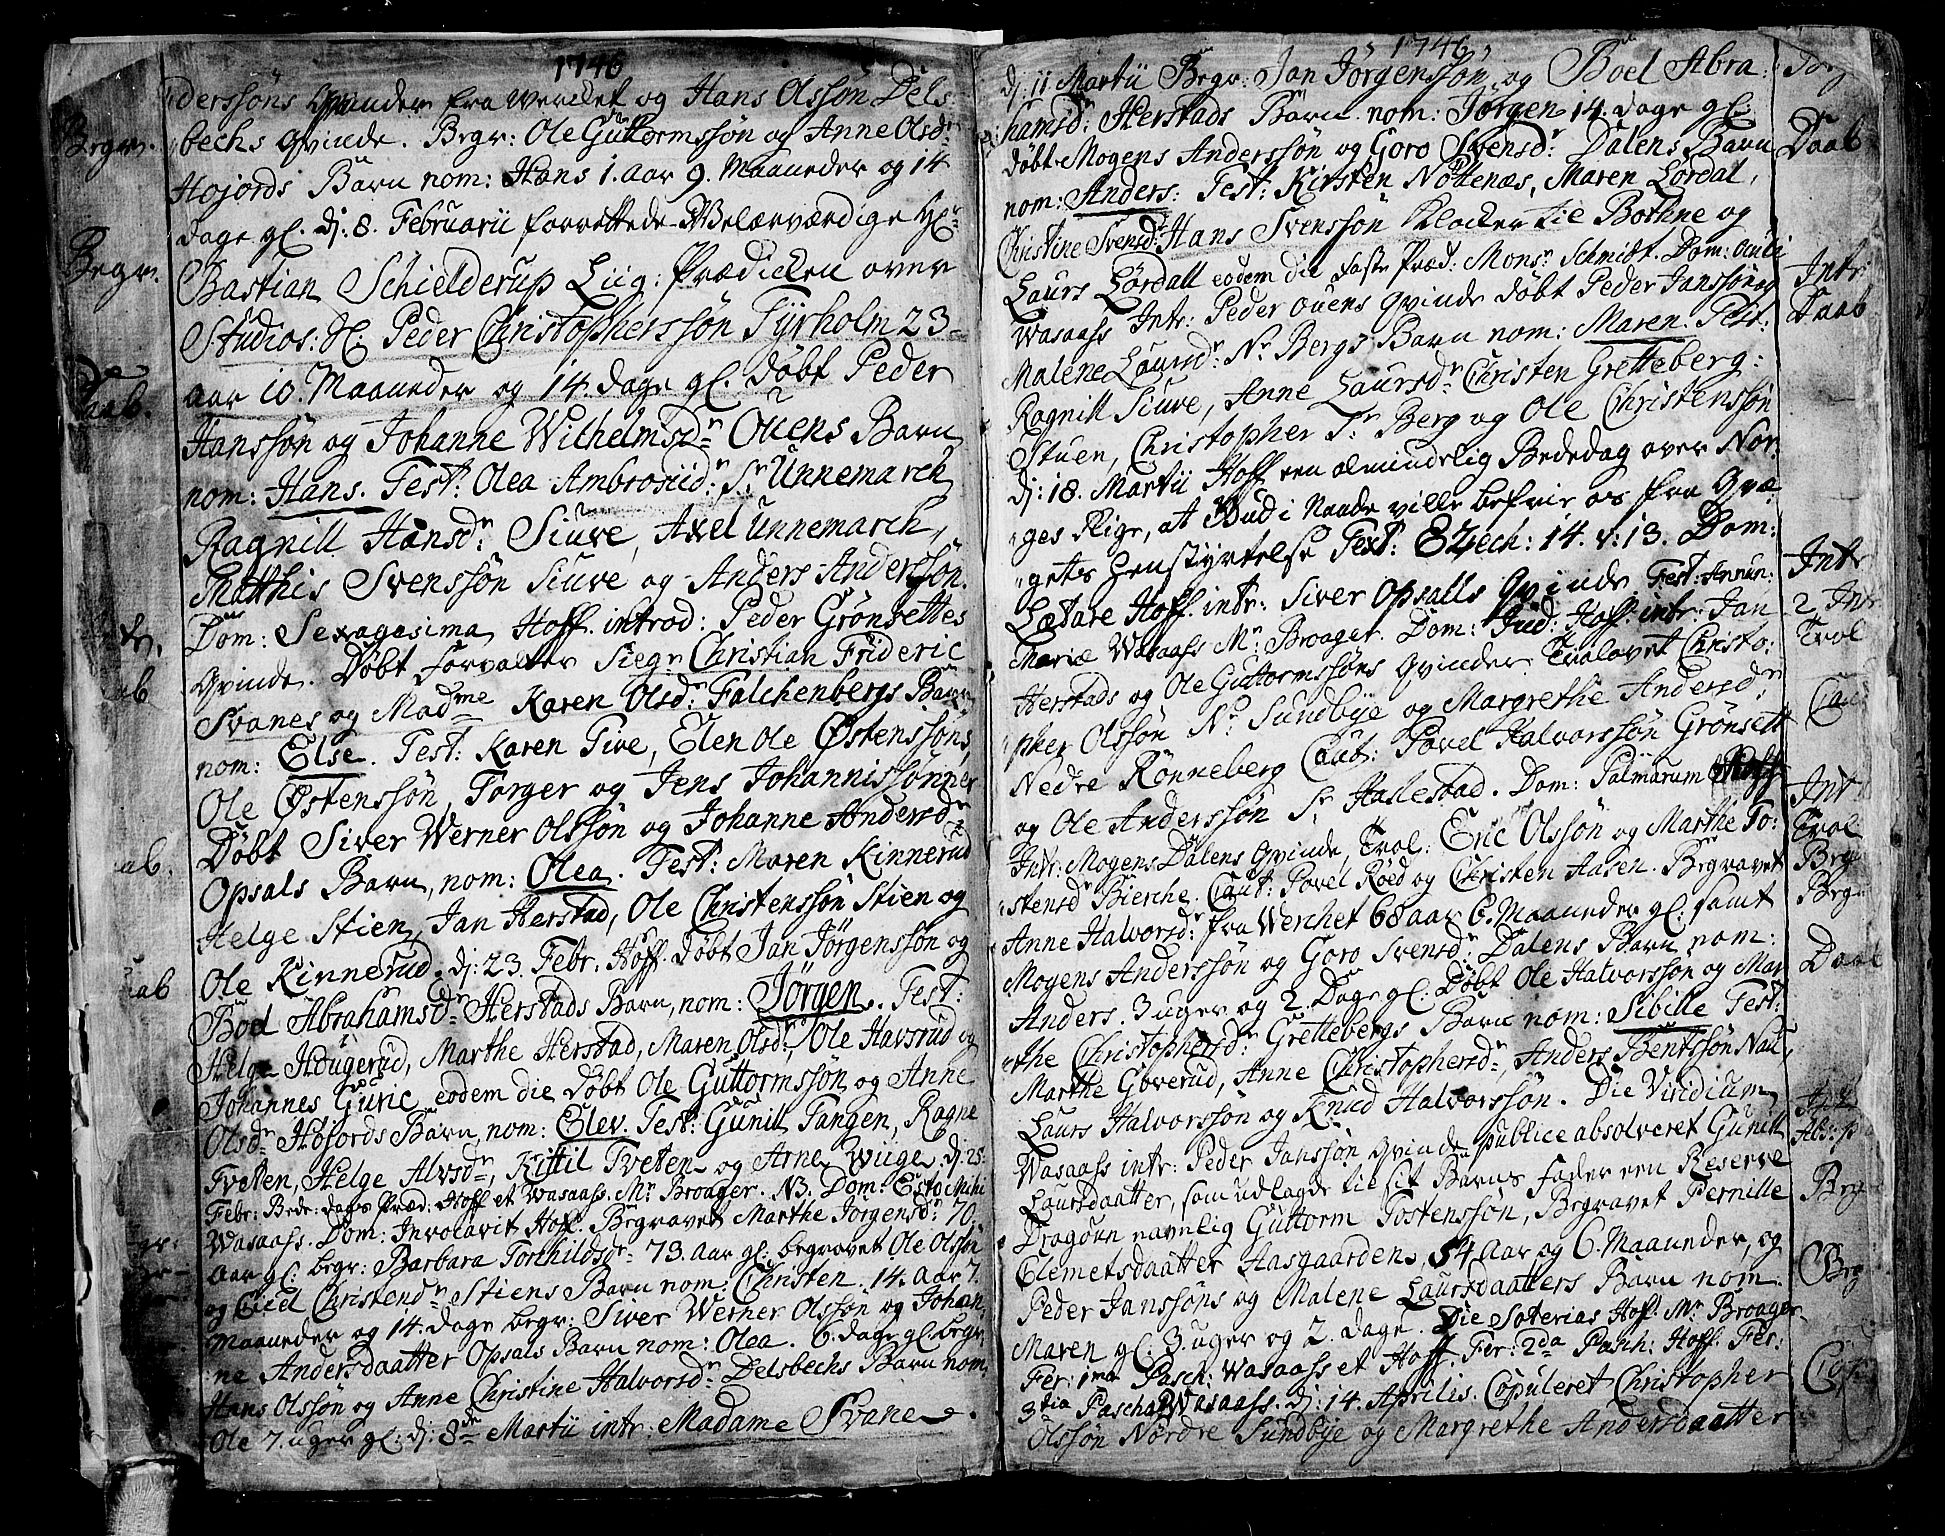 1746
derssøns Qvinder fra Verchet og Hans Olssøn Dels:
Begr. bechs Qvinde. Begr: Ole Guttormssøn og Anne Olsdr
Hojords Barn nom: Hans 1. Aar 9. Maaneder og 14
dage gl. dj: 8. Februarii forrettede Welærværdige Hr
Begr. Bastian Schielderup Liig: Prædicken over
Studios: Hr. Peder Christopherssøn Tyrholm 23
Aar 10. Maaneder og 14. dage gl. Døbt Peder
Daab. Hanssøn og Johanne Wilhelmsdr Ouens Barn
nom: Hans. Test: Olea Ambrosiid: Sr Unnemarch
Ragnill Hansdr Siuve, Axel Unnemarch,
Matthis Svenssøn Siuve og Anders Anderssøn.
Dom: Sexagesima Hoff. introd: Peder Grønsettes
Qvinde. Døbt Forvalter Siegr Christian Frideric
ab Svanes og Madme Karen Olsdr Falchenbergs Barn
nom: Else. Test: Karen Tive, Elen Ole Østenssøns,
Ole Østenssøn, Torger og Jens Johannissønner
Døbt Siver Werner Olssøn og Johanne Andersdr
ab. Opsals Barn, nom: Olea. Test: Maren Kinnerud
Helge Stien, Jan Herstad, Ole Christenssøn Stien og
Ole Kinnerud. dj: 23. Febr. Hoff. Døbt Jan Jørgenssøn og
aab Boel Abrahamsdr Herstads Barn, nom: Jørgen. Test:
Helge Hougerud, Marthe Herstad, Maren Olsdr, Ole Havsrud og
Johannes Guric, eodem die Døbt Ole Guttormssøn og Anne
Olsdr Hojords Barn, nom: Elev. Test: Gunill Tangen, Ragne
Tveten, Helge Alvsdr, Kittil Tveten og Arne Wuge. dj: 25
Febr: Bede: dags Præd: Hoff et Wasaass. Mr Broager. NB. Dom: Esto Mihi
Wasaass. Dom: Invocavit Hoff. Begravet Marthe Jørgensdr 70
Aar gl: begr: Barbara Torchildsdr 73. Aar gl: begravet Ole Olssøn
og Christendr Stiens Barn nom: Christen. 14. Aar 7.
Maaneder og 14. dage begr: Siver Werner Olssøn og Johan
ne Andersdaatter Opsals Barn nom: Olea. 6. dage gl. begr.
Hans Olssøn og Anne Christine Halvorsdr Delsbechs Barn nom.
Ole 7. uger gl: dj: 8de Martii intr: Madame Svane.
1746
dj: 11 Martii Begr: Jan Jørgenssøn og Boel Abra:
hamsd: Herstads Barn nom: Jørgen 14. dage gl:
Døbt Mogens Anderssøn og Goro Svensdr Dalens Barn Daab
nom: Anders: Test: Kirsten Nottenæs, Maren Lordal,
Christine Svensdr Hans Svenssøn Klocker til Bothne og
Laurs Lørdall eodem die Faste Præd: Monsr Schmidt. Dom: Oculi Intr
Wasaass Intr: Peder Ouens Qvinde Døbt Peder Janssøn og Daab
Malene Laursdr Nr Bergs Barn nom: Maren. Test:
Ragnill Siuve, Anne Laursdr Christen Gretteberg:
Stuen, Christopher Sr Berg og Ole Christenssøn
dj: 18. Martii Hoff een almindelig Bededag over Nor:
ges Rige, at Gud i Naade ville befrie os fra Qvæ
gets Henstyrtelse Text: Ezech: 14. v: 13. Dom:
Lætare Hoff. intr: Siver Opsalls Qvinde Fest: Annun: Intr
Mariæ Wasaass Mr Broager. Dom: Jud: Hoff. intr: Jan 2 Intr
Herstads og Ole Guttormssøns Qvinder Trolovet Christo: Trol
pher Olssøn Nr Sundbye og Margrethe Andersdr
Nedre Rønneberg Caut: Povel Halvorssøn Grønsett Caut
og Ole Anderssøn Sr Hallestad. Dom: Palmarum Hoff
Intr: Mogens Dalens Qvinde, Trol: Eric Olssøn og Marthe To: Intr Trol
stensd Bierche. Caut: Povel Røed og Christen Aasen. Begravet Begr
Anne Halvorsdr fra Werchet 68 Aar 6. Maaneder gl: samt Begr
Mogens Anderssøn og Goro Svensdr Dalens Barn nom:
Anders. 3 uger og 2. Dage gl: Døbt Ole Halvorssøn og Mar Daab
the Christophersdr Grettebergs Barn nom: Sibille Test:
Marthe Goverud, Anne Christophersdr, Anders Bentssøn
Laurs Halvorssøn og Knud Halvorssøn. Die Viridium
Wasaass intr: Peder Janssøn Qvinde publice absolveret Gunill Intr
Laursdaatter, som udlagde til sit Barns Fader een Reserve
Dragoun navnlig Guttorm Tostenssøn, Begravet Pernille Beg
Clemetsdaatter Aasgaarden, 54 Aar og 6. Maaneder, og
Peder Janssøns og Malene Laursdaatters Barn nom. Beg
Maren gl: 3. uger og 2. dage. Die Soterias Hoff. Mr Broager
Fer: 1ma Pasch: Wasaass et Hoff. Fer: 2da Pasch: Hoff. Fer:
3tia Pascha Wasaass. dj: 14. Aprilis. Copuleret Christopher Cop
Olssøn Nordre Sundbye og Margrethe Andersdaatter